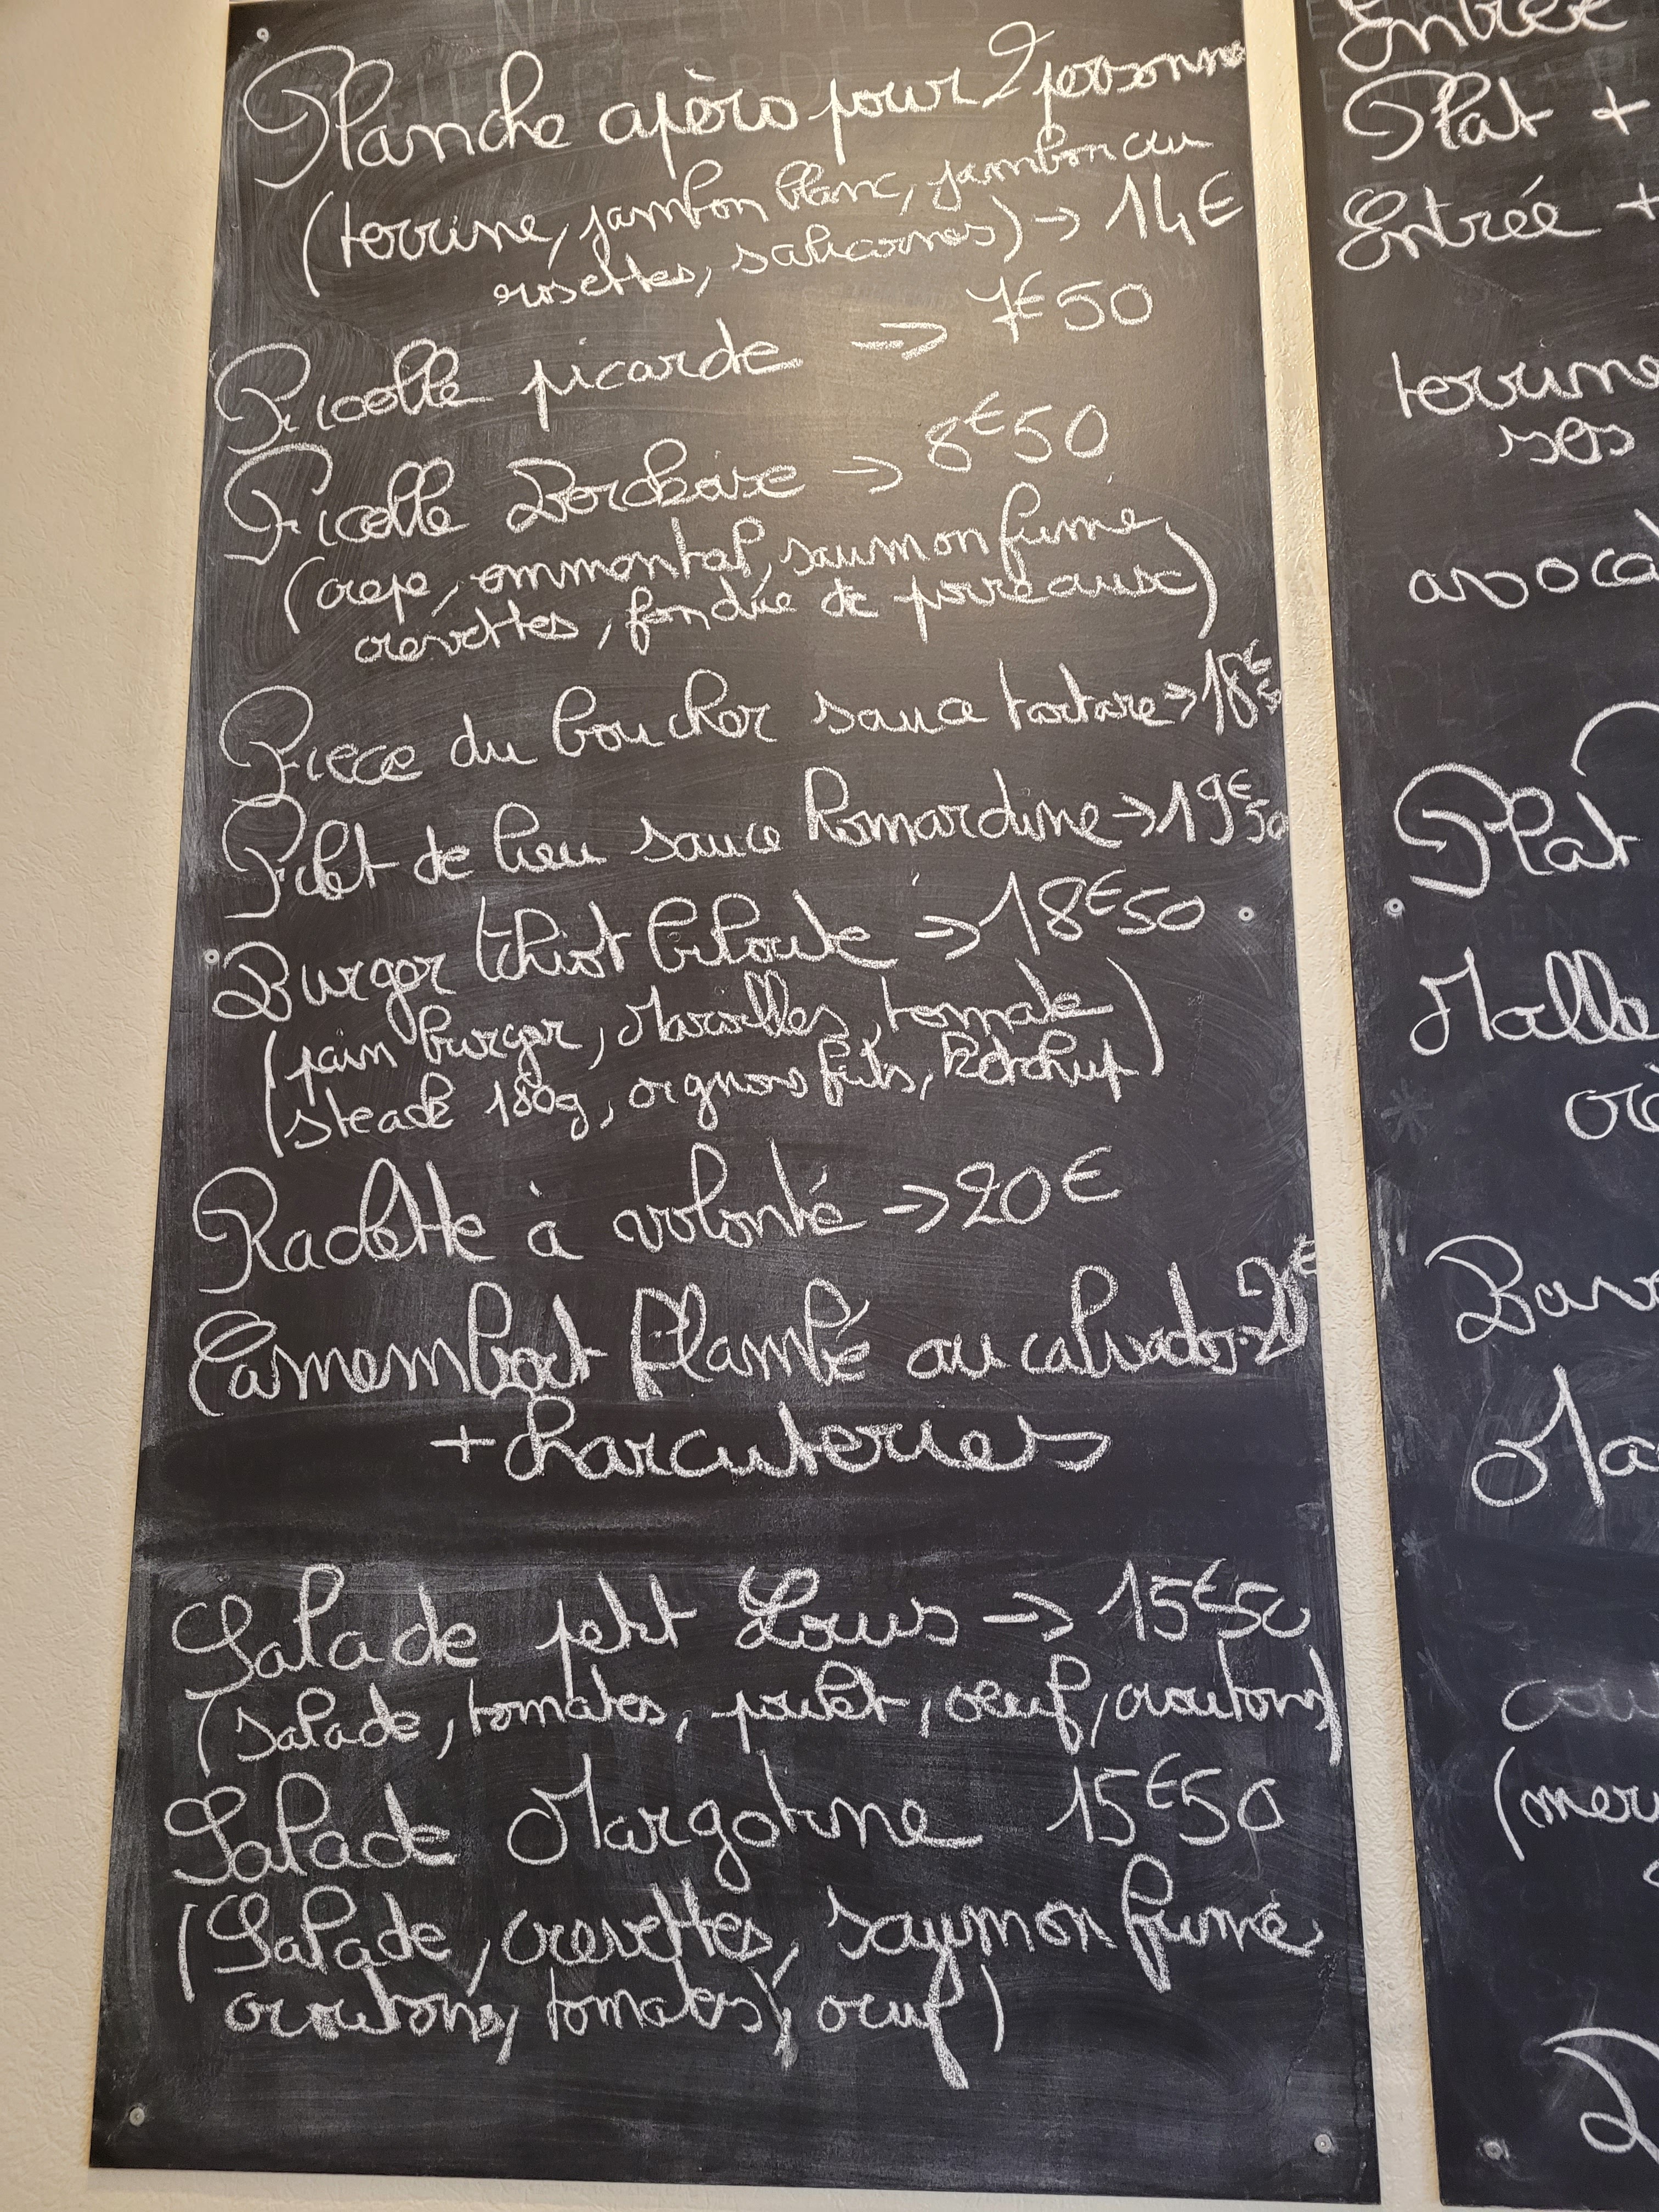 Planche apéro pour 2 personnes
(terrine, jambon blanc, jambon cru
rosettes, salicornes) -> 14€
Ficelle picarde => 7€50
Ficelle Bordeaise -> 8€50
(crepe, emmental, saumon fumé,
crevettes, fondue de poireaux)
Piece du boucher sauce tartare -> 18€50
Filet de lieu sauce homardine -> 19€50
Burger tchiot biloute => 18€50
(pain burger, Maroilles, tomate
steack 180g, oignons frits, Ketchup)
Raclette à volonté -> 20€
Camembert flambé au calvados 20€
+ charcuteries
Salade petit Louis -> 15€50
(salade, tomates, poulet, oeuf, croutons)
Salade Margotine 15€50
(Salade, crevettes, saumon fumé
croutons, tomates, oeuf)
Entrée
Plat +
Entrée +
terrine
ses
Plat